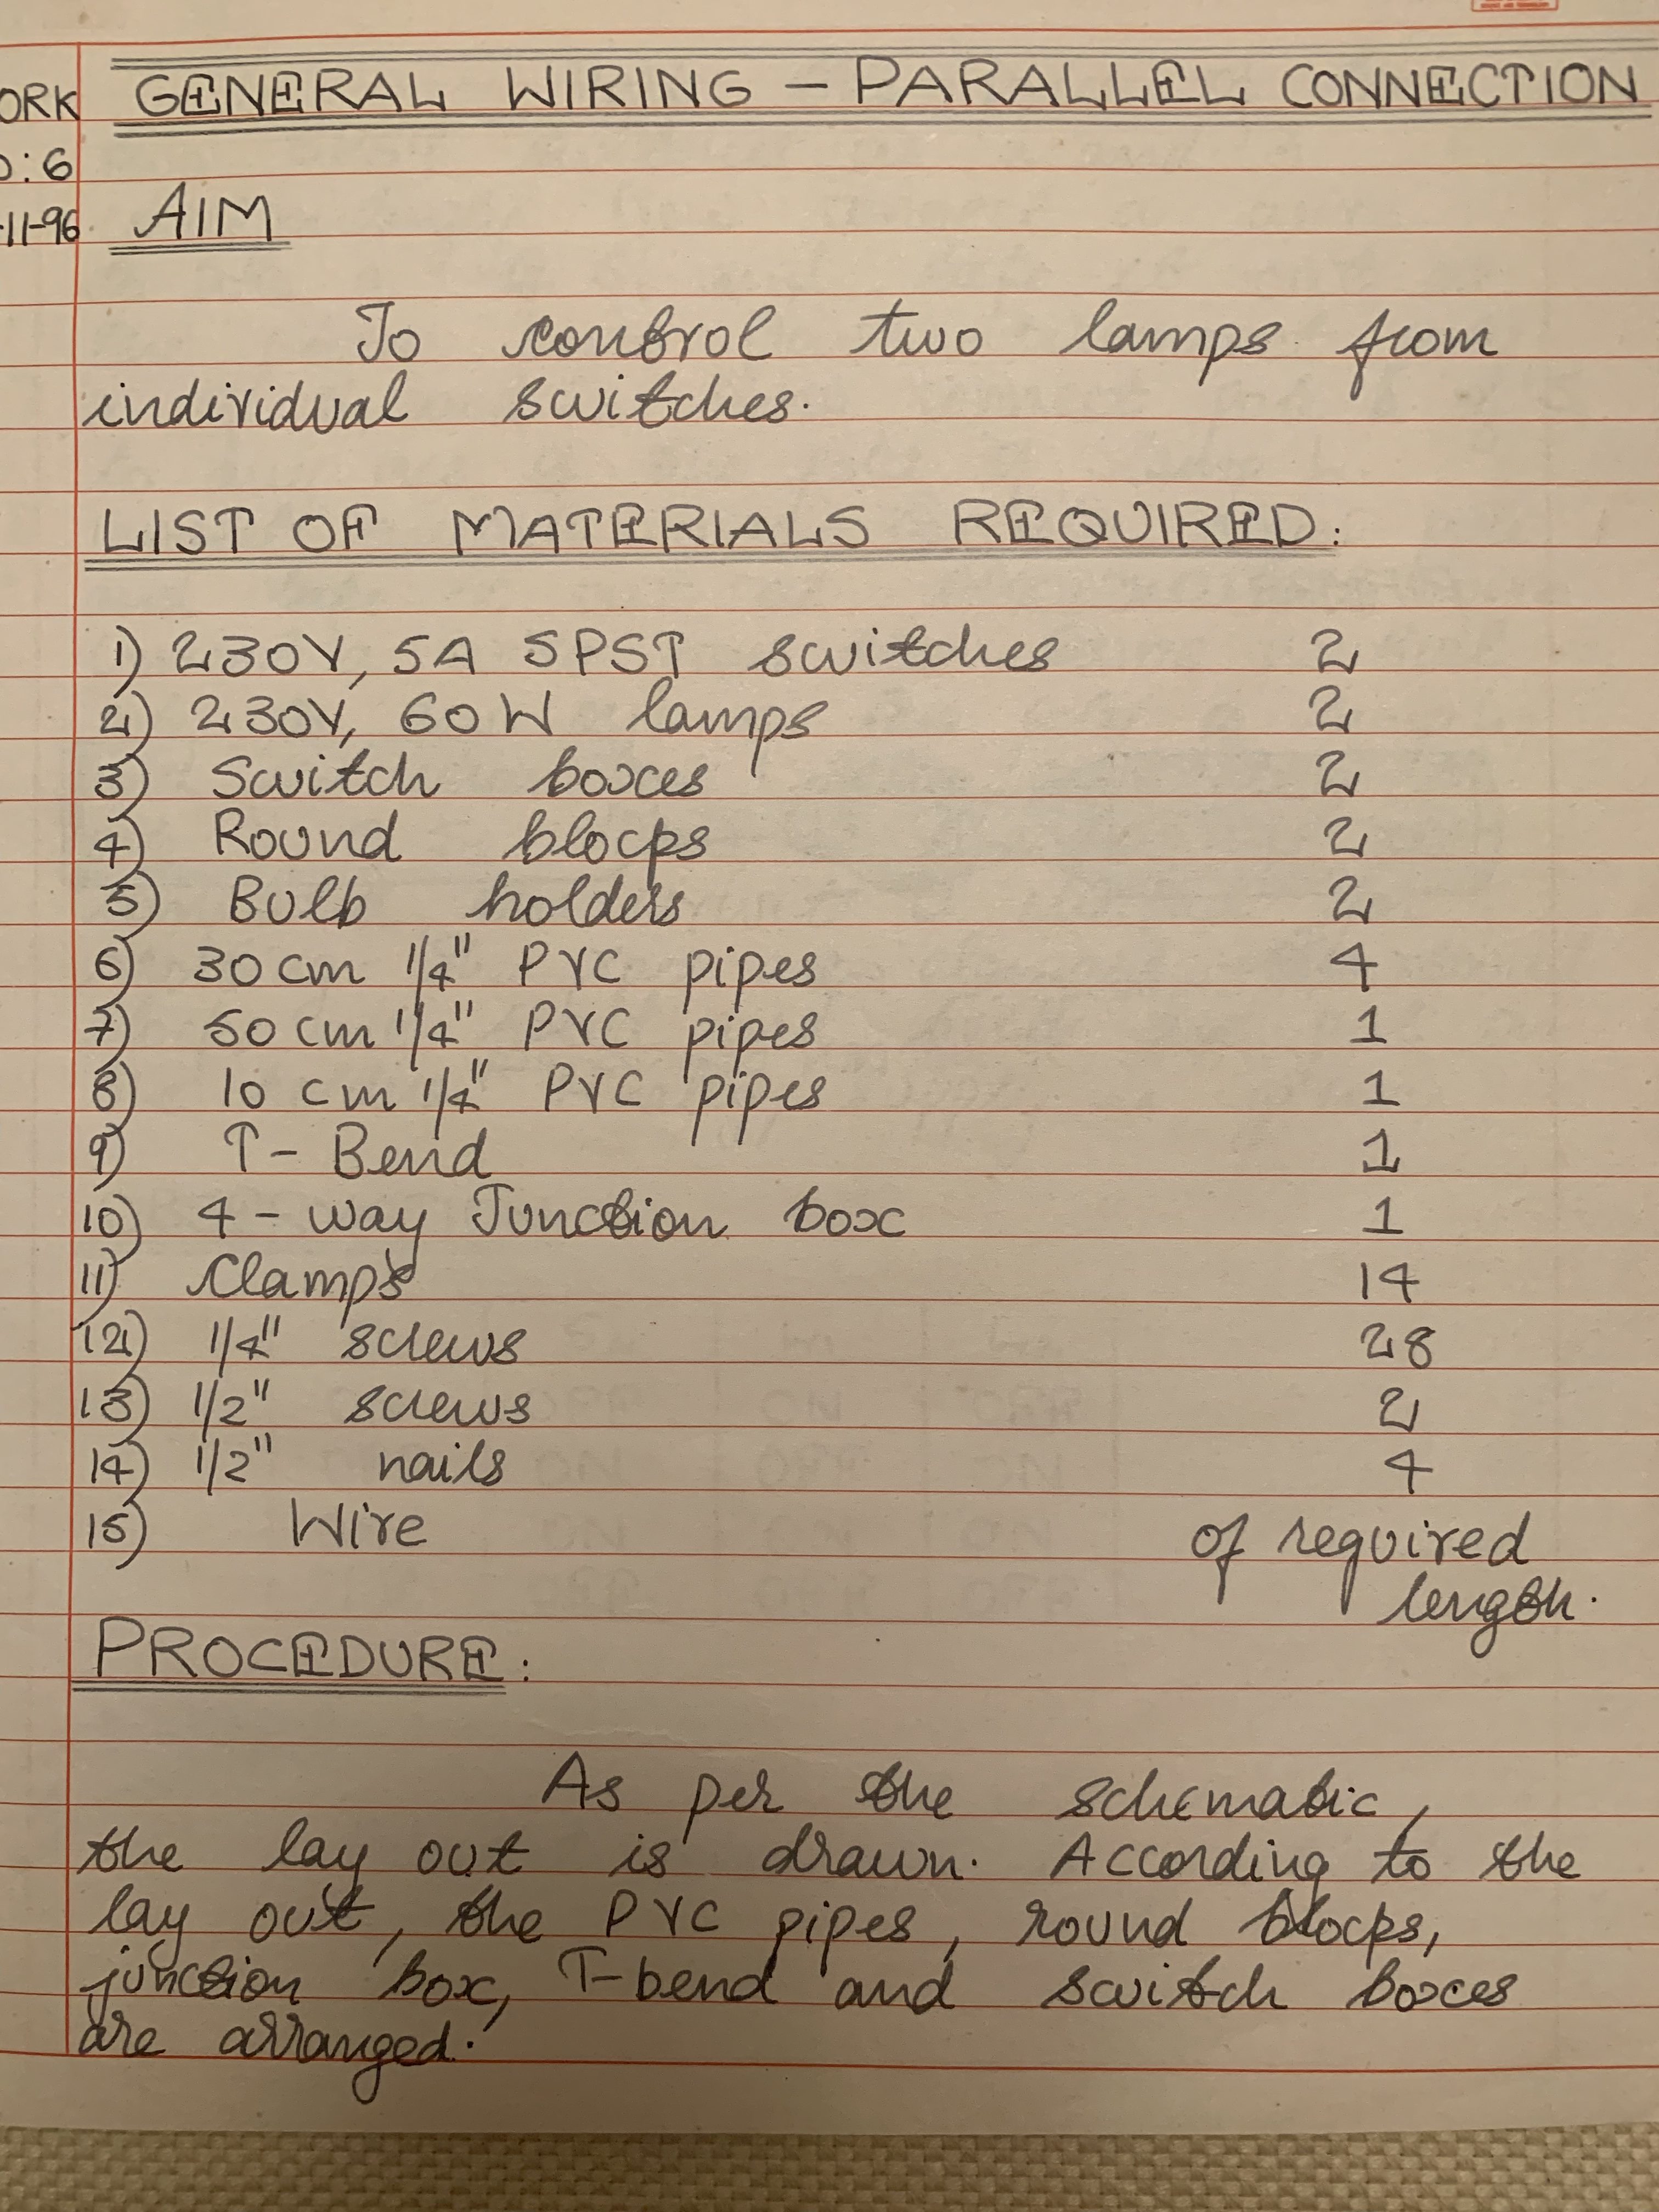 ORK GENERAL WIRING - PARALLEL CONNECTION
:6
-11-96 AIM
To control two lamps from
individual switches.
LIST OF MATERIALS REQUIRED:
1) 230V, 5A SPST switches 2
2) 230V, 60W lamps 2
3) Switch boxes 2
4) Round blocks 2
5) Bulb holders 2
6) 30 cm 1/4" PVC pipes 4
7) 50 cm 1/4" PVC pipes 1
8) 10 cm 1/4" PVC pipes 1
9) T - Bend 1
10) 4 - way Junction box 1
11) Clamps 14
12) 1/4" screws 28
13) 1/2" screws 2
14) 1/2" nails 4
15) Wire of required
length.
PROCEDURE:
As per the schematic,
the lay out is drawn. According to the
lay out, the PVC pipes, round blocks,
junction box, T-bend and switch boxes
are arranged.